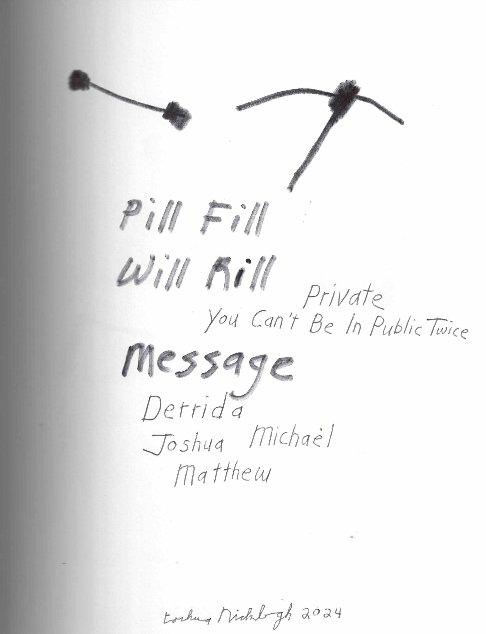 Pill Fill
Will Rill
Private
You Can't Be In Public Twice
Message
Derrida
Joshua Michael
Matthew
Joshua 2024